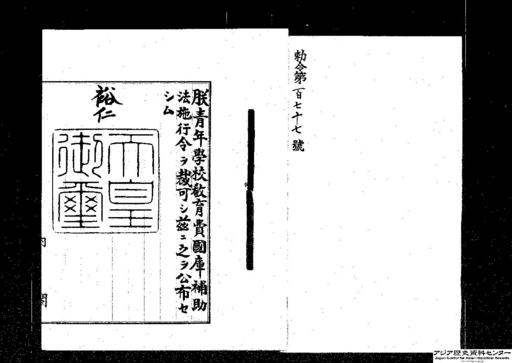 勅令第百七十七號
朕青年學校教育費國庫補助
法施行令ヲ裁可シ茲ニ之ヲ公布セ
シム
裕仁
天皇
御璽
内閣
アジア歴史資料センター
Japan Center for Asian Historical Records